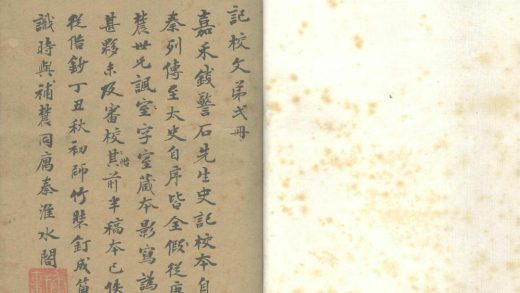 記校文弟弍冊
嘉禾錢警石先生史記校本自
秦列傳至太史自序皆全假從
農世兄諷室字室藏本影寫譌
甚夥未及審校其前半稿本已佚
從階鈔丁丑秋初師竹裝釘成
識時與補農同寓秦淮水閣